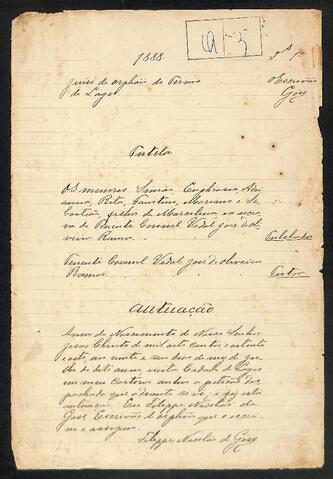 1888
A-5
Juiso de orphãos do Termo
de Lages
O Escrivão
Góss
Tutela
Os menores Simião, Euphrasia, Adri
anna, Rita, Faustino, Mariano e Se
bastião, filhos de Marcelina, ex escra
va do Tenente Coronel Vidal José d'Oli
veira Ramos. Tutelados
Tenente Coronel Vidal José de Oliveira
Ramos. Tutor
Autuação
Anno do Nascimento de Nosso Senhor
Jesus Christo de mil oito centos e oitenta
e oito, aos vinte e seis dias do mez de
do dito anno, nesta Cidade de Lages
em meu Cartorio autuo a petição des
pachada que adiante se vê; e fiz esta
autuação. Eu Filippe Nicoláo de
Góss Escrivão de orphãos que o escre
vi e assigno.
Filippe Nicoláo de Góss